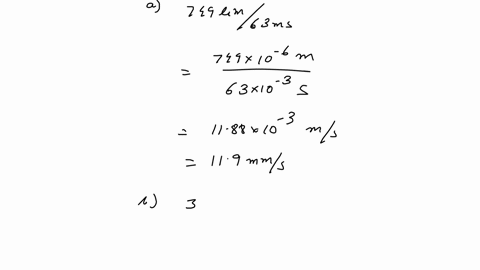 a) 749 μm/63ms
= 749×10⁻⁶ m / 63×10⁻³ S
= 11.88×10⁻³ m/s
= 11.9 mm/s
b) 3